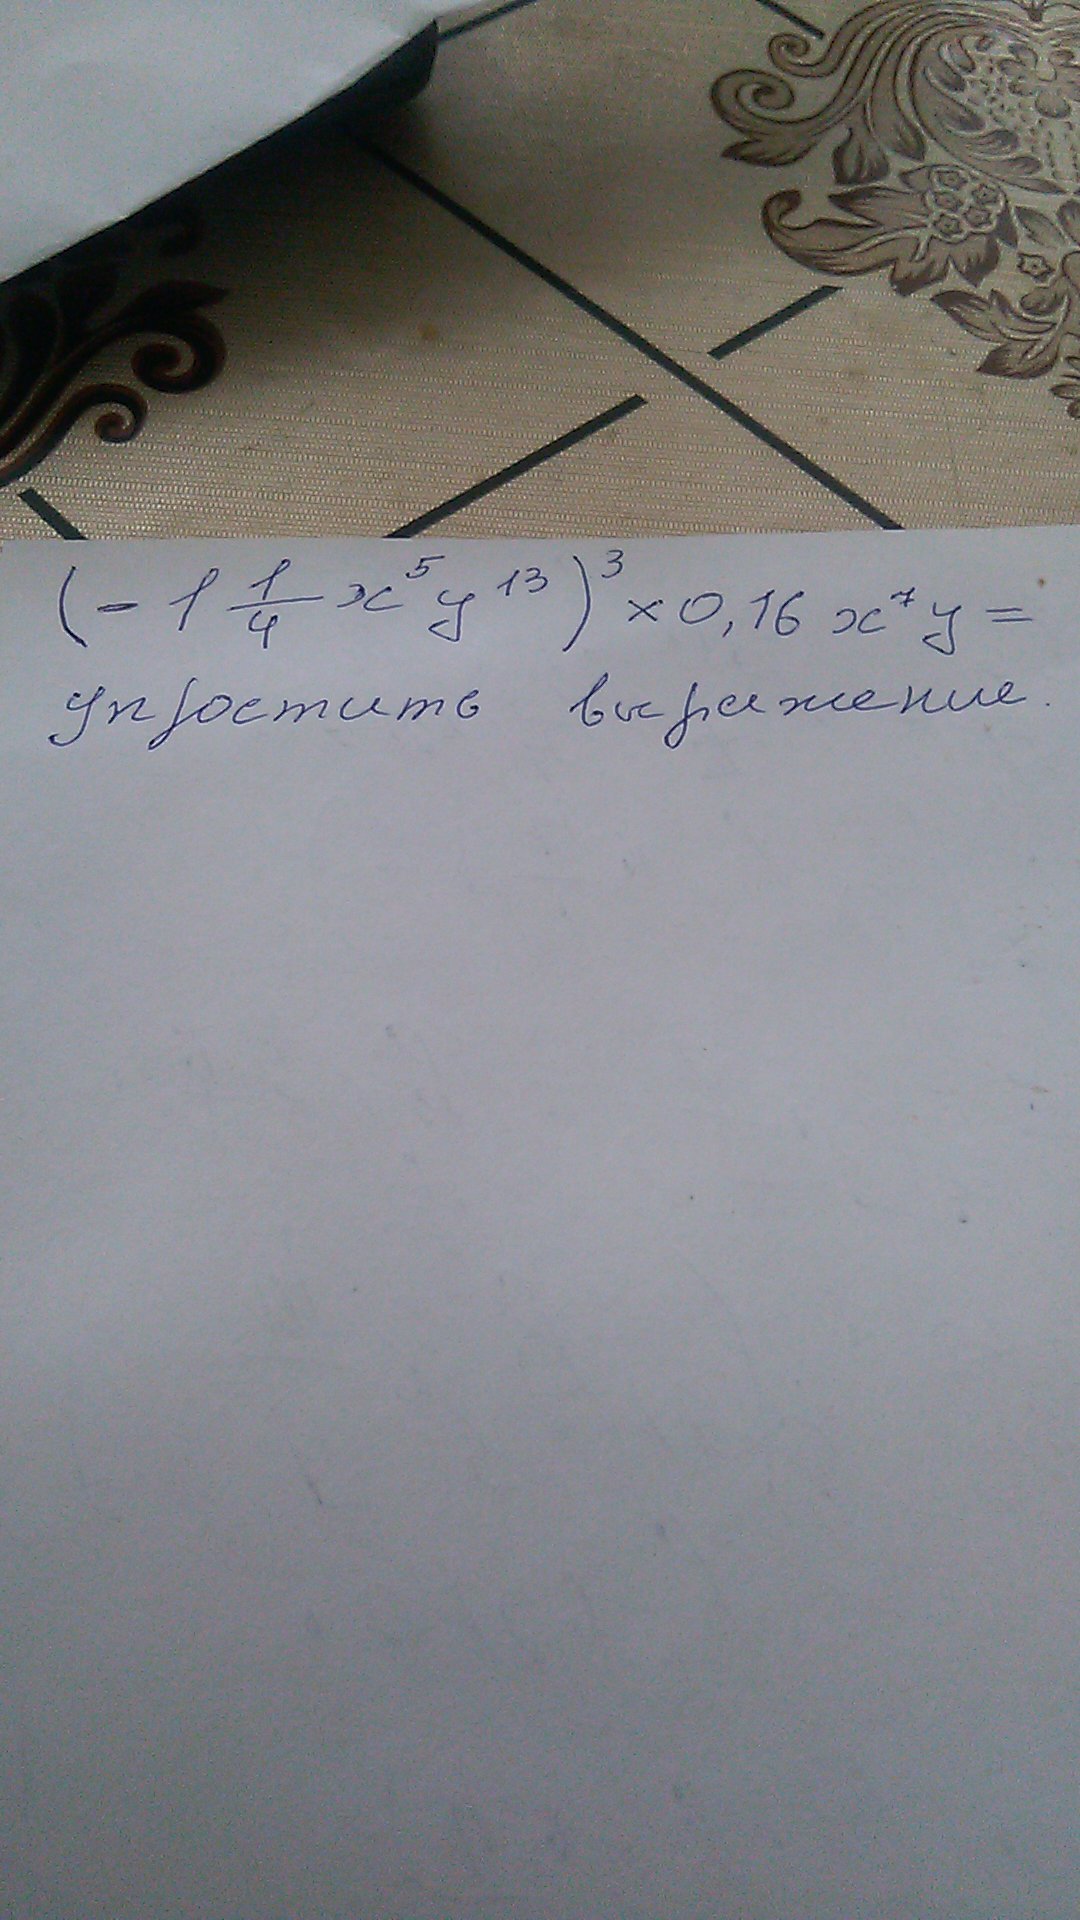 (- 1 1/4 x⁵y¹³)³ × 0,16 x⁷y =
упростить выражение.